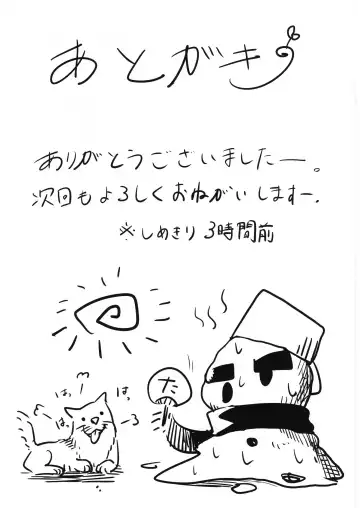 あとがき
ありがとうございましたー。
次回もよろしくおねがいしますー.
※しめきり 3時間前
た
は,
は,